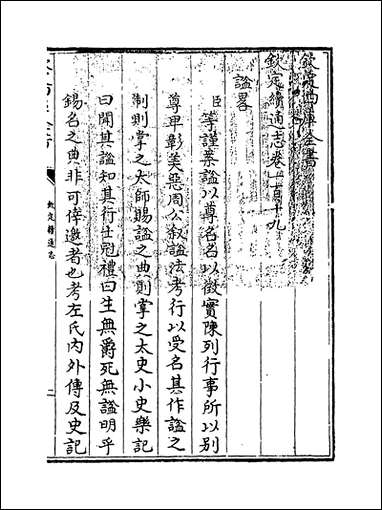 欽定四庫全書
欽定續通志卷一百十九
諡畧
臣等謹案諡以尊名名以徵實陳列行事所以別
尊卑彰美惡周公敘諡法考行以受名其作諡之
制則掌之太師賜諡之典則掌之太史小史樂記
曰聞其諡知其行士冠禮曰生無爵死無諡明乎
錫名之典非可倖邀者也考左氏內外傳及史記
欽定續通志